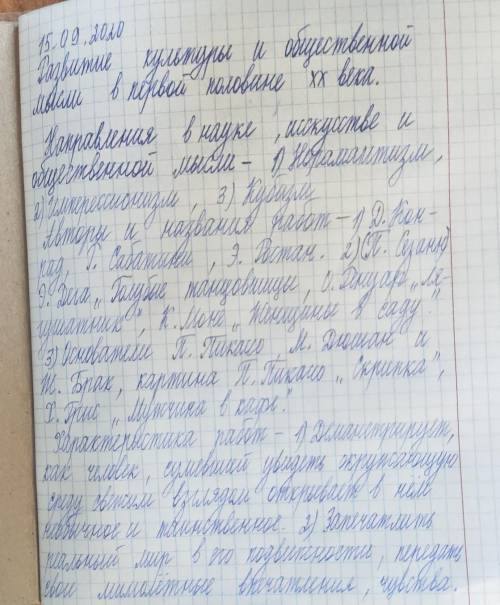 15.09.2020
Развитие культуры и общественной
мысли в первой половине XX века.
Направления в науке, искусстве и
общественной мысли – 1) Неоромантизм,
2) Импрессионизм, 3) Кубизм
Авторы и названия работ – 1) Д. Кон-
рад, Сабатини, Э. Ростан. 2) (П. Сезанн)
Э. Дега „Голубые танцовщицы, О. Ренуар „Ля-
гушатник", К. Моне „Женщины в саду".
3) Основатели П. Пикассо, М. Дюшан и
Ж. Брак, картина П. Пикассо „Скрипка",
Х. Грис „Мужчина в кафе".
Характеристика работ – 1) Демонстрирует,
как человек, сумевший увидеть окружающую
среду свежим взглядом открывает в нём
необычное и таинственное. 2) Запечатлить
реальный мир в его подвижности, передать
свои мимолётные впечатления, чувства.